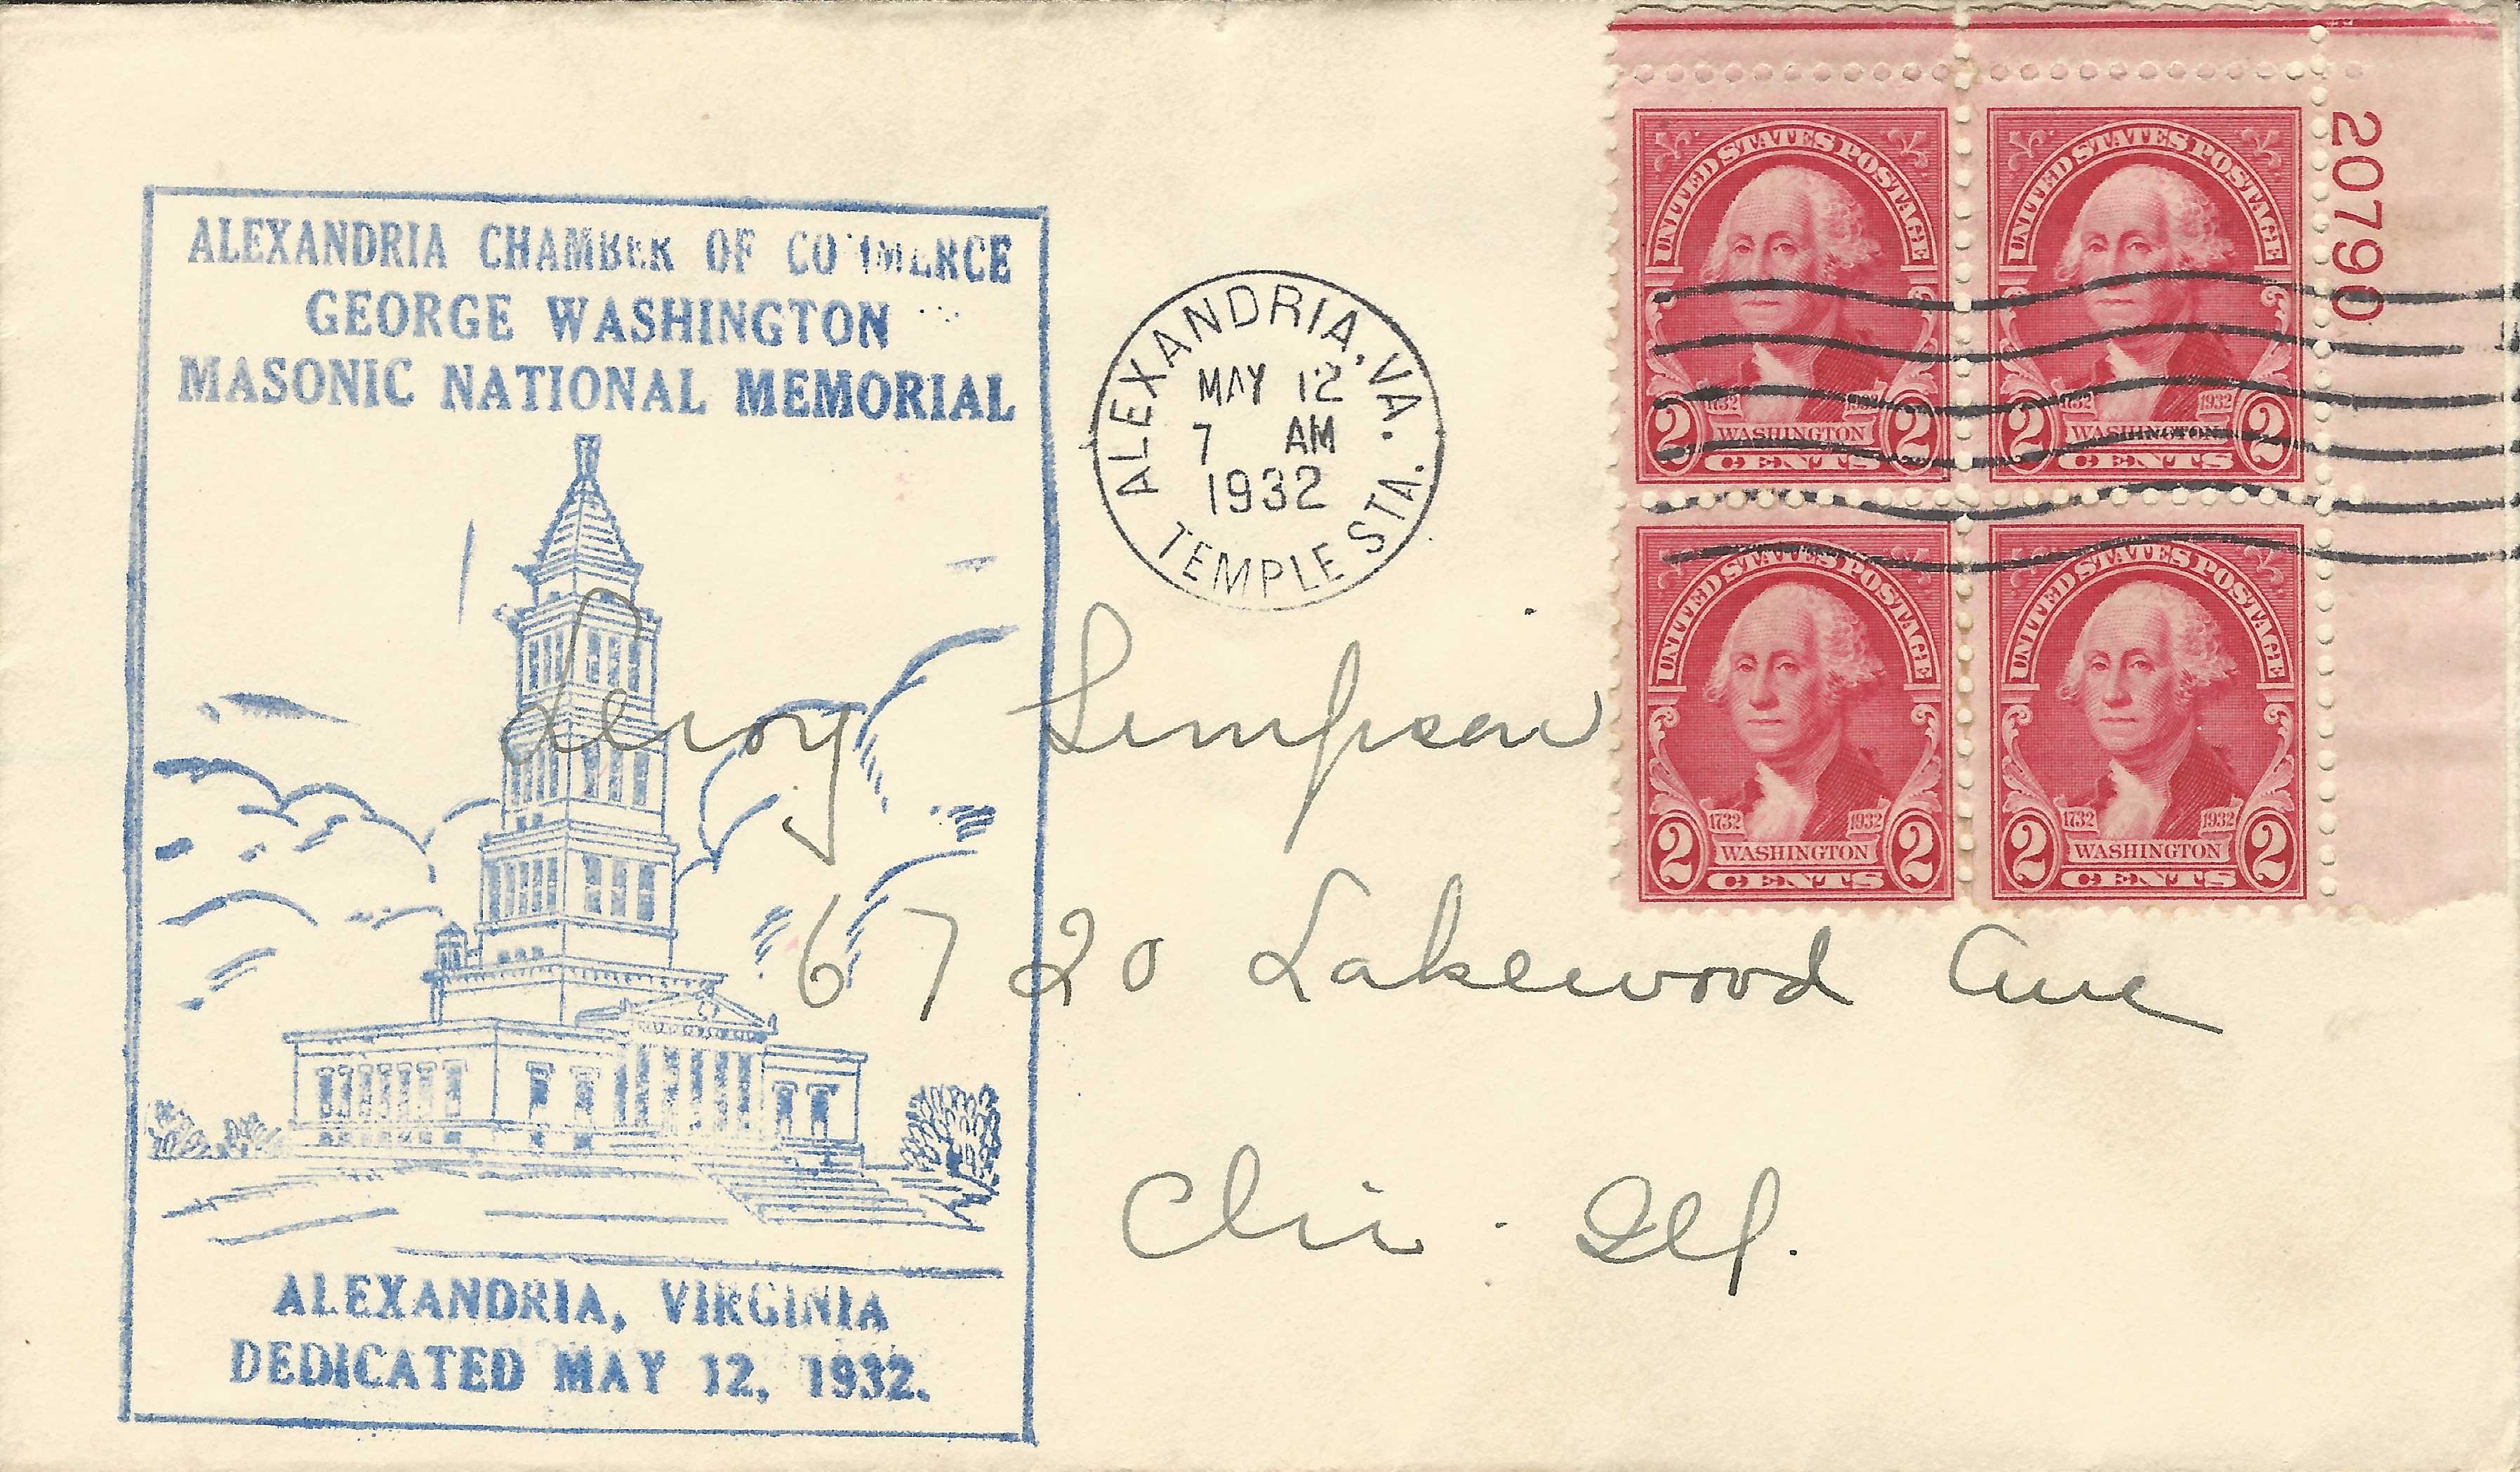 ALEXANDRIA CHAMBER OF COMMERCE
GEORGE WASHINGTON
MASONIC NATIONAL MEMORIAL
ALEXANDRIA, VIRGINIA
DEDICATED MAY 12, 1932.
ALEXANDRIA, VA.
MAY 12
7 AM
1932
TEMPLE STA.
UNITED STATES POSTAGE
1732 1932
2 WASHINGTON 2
CENTS
UNITED STATES POSTAGE
1732 1932
2 WASHINGTON 2
CENTS
20790
UNITED STATES POSTAGE
1732 1932
2 WASHINGTON 2
CENTS
UNITED STATES POSTAGE
1732 1932
2 WASHINGTON 2
CENTS
Leroy Simpson
6720 Lakewood Ave
Chi. Ill.